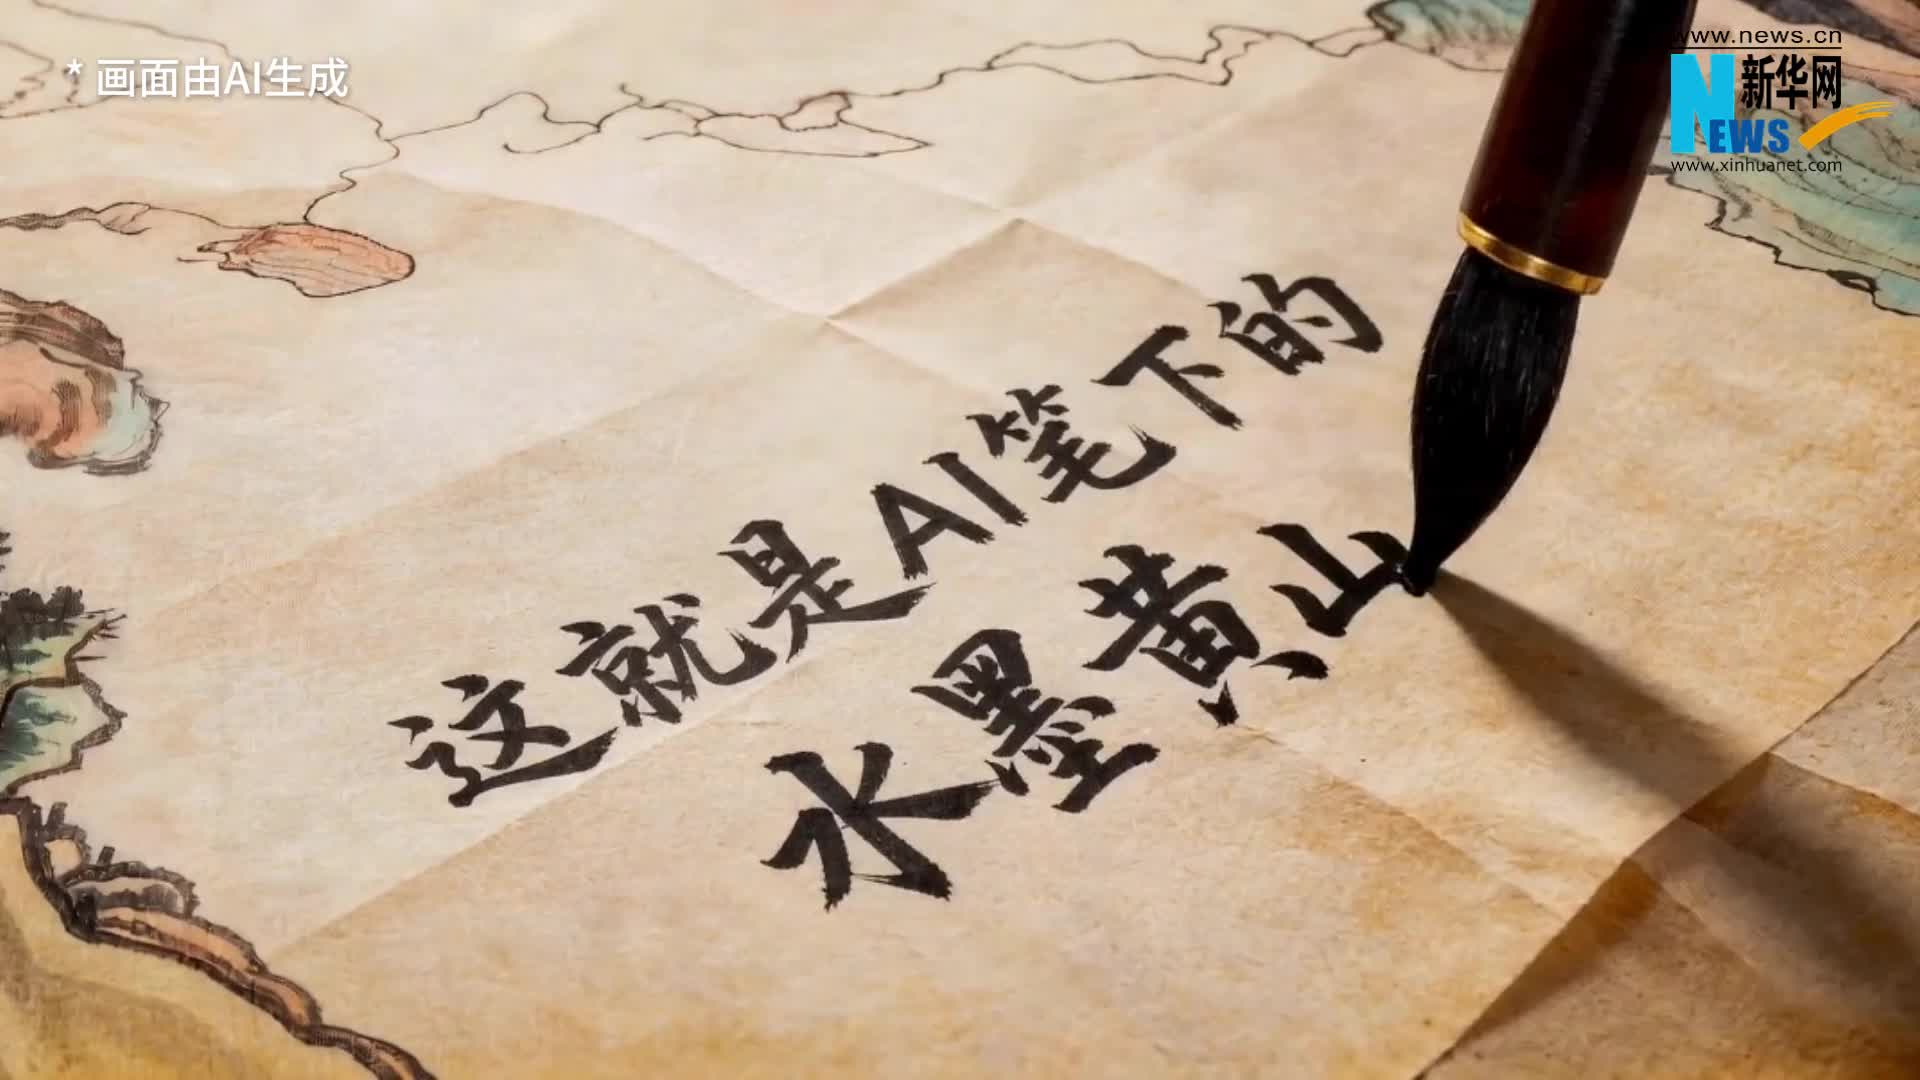 * 画面由AI生成
www.news.cn
新华网
NEWS
www.xinhuanet.com
这就是AI笔下的
水墨黄山